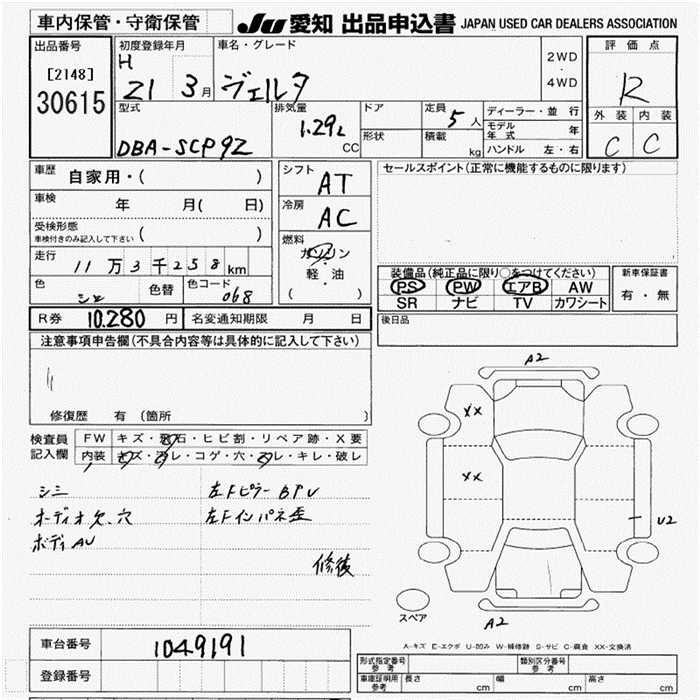 車内保管・守衛保管
JU 愛知 出品申込書 JAPAN USED CAR DEALERS ASSOCIATION
出品番号
[2148]
30615
初度登録年月
H
21 3月
車名・グレード
ジェルタ
2WD
・
4WD
評価点
R
外装 内装
C C
型式
DBA-SCP92
排気量
1.29L
CC
ドア
形状
定員
5人
積載
kg
ディーラー・並行
モデル年式 年
ハンドル 左・右
車歴
自家用・( )
車検
年 月( 日)
受検形態
車検付きのみ記入して下さい ( )
走行
11万3千258km
色
色替
色コード
068
シフト
AT
冷房
AC
燃料
ガソリン
・
軽・油
( )
セールスポイント(正常に機能するものに限ります)
装備品(純正品に限り○をつけてください)
PS PW エアB AW
SR ナビ TV カワシート
新車保証書
有・無
後日品
R券 10.280円 名変通知期限 月 日
注意事項申告欄(不具合内容等は具体的に記入して下さい)
修復歴 有 (箇所 )
検査員
記入欄
FW キズ・飛石・ヒビ割・リペア跡・X要
内装 キズ・汚レ・コゲ・穴・スレ・キレ・破レ
シミ
オーディオ欠、穴
ボディAU
左Fピラー BPV
左Fインパネ歪
修後
A2
XX
XX
U2
A2
スペア
A-キズ E-エクボ U-凹み W-補修跡 S-サビ C-腐食 XX-交換済
車台番号 1049191
登録番号
形式指定番号
参考
類別区分番号
参考
車庫証明用
参考
長さ cm 幅 cm 高さ cm